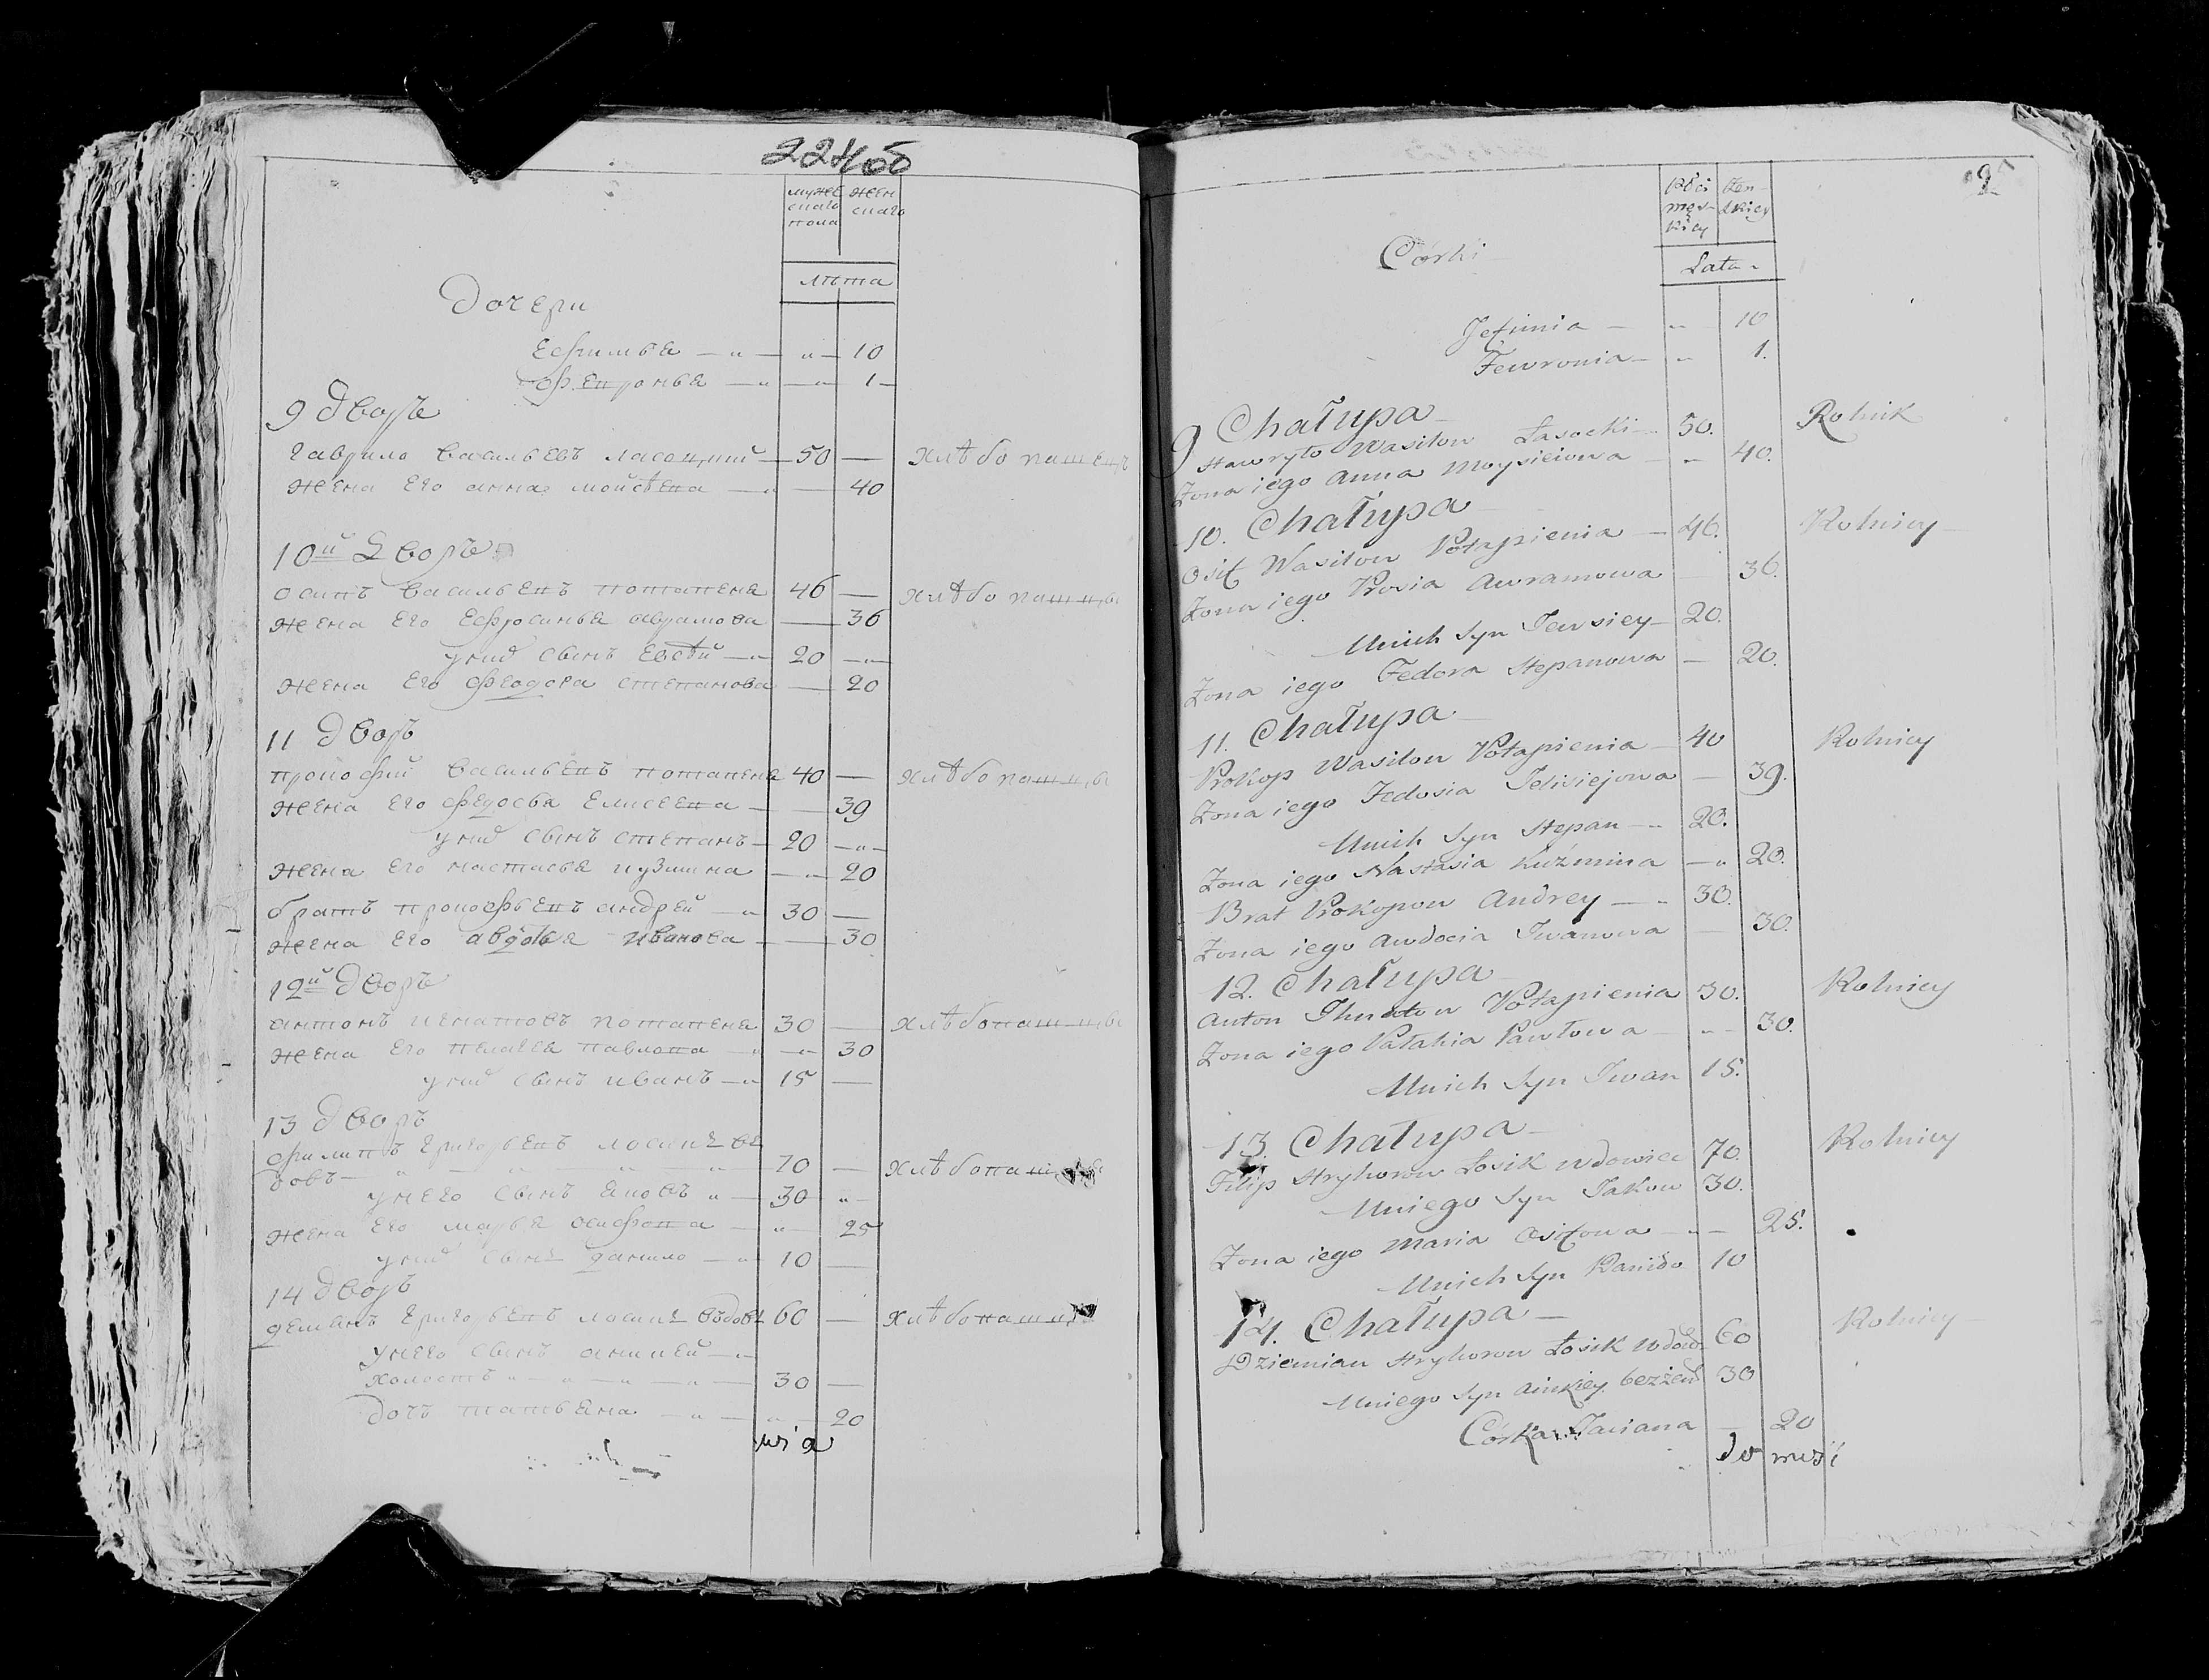 224об
мужескаго пола
женскаго
лѣта
Дочери
Ефимья — 10
Февронья — 1
9 дворъ
Гаврило Васильевъ Ласоцкий — 50 — хлѣбопашецъ
жена его анна мойсѣева — 40
10й Дворъ
осипъ васильевъ потапеня 46 — хлѣбопашцы
жена его Ефросинья аврамова — 36
у них сынъ Евсѣй — 20
жена его феодора степанова — 20
11 дворъ
прокофий васильевъ потапеня 40 — хлѣбопашцы
жена его федосья Елисеева — 39
у них сынъ степанъ — 20
жена его настасья кузмина — 20
братъ прокофьевъ андрей — 30
жена его авдотья иванова — 30
12й дворъ
антонъ игнатовъ потапеня 30 — хлѣбопашцы
жена его пелагея павлова — 30
у них сынъ иванъ — 15
13 дворъ
филипъ григорьевъ лосик в
довъ — 70 — хлѣбопашцы
у него сынъ яковъ — 30
жена его марья осифова — 25
у них сынъ данило — 10
14 дворъ
демянъ григорьевъ лосик вдовъ 60 — хлѣбопашцы
у него сынъ аникей
холостъ — 30
дочъ татьяна — 20
wia
Płci męskiey
żenskiey
Lata
Córki
Jefimia — 10
Fewronia — 1.
9 Chałupa
Hawryło Wasilow Łasocki — 50. Rolnik
Żona iego Anna Moysieiowa — 40.
10. Chałupa
Osif Wasilow Potapienia — 46. Rolnicy
Żona iego Prosia Awramowa 36.
Unich Syn Jewsiey — 20.
Żona iego Fedora Stepanowa — 20.
11. Chałupa
Prokop Wasilow Potapienia — 40 Rolnicy
Żona iego Fedosia Jelisiejowa — 39.
Unich Syn Stepan — 20.
Żona iego Nastasia Kuźmina — 20.
Brat Prokopow Andrey — 30.
Żona iego Awdocia Iwanowa — 30.
12. Chałupa
Anton Ihnatow Potapienia 30. Rolnicy
Żona iego Pałahia Pawłowa — 30.
Unich Syn Iwan 15.
13. Chałupa
Filip Hryhorow Łosik wdowiec 70. Rolnicy
Uniego Syn Jakow 30.
Żona iego Maria Osifowa — 25.
Unich Syn Daniło 10
14. Chałupa
Dziemian Hryhorow Łosik wdow 60 Rolnicy
Uniego Syn Ainkiey bezżen 30
Córka Taciana — 20